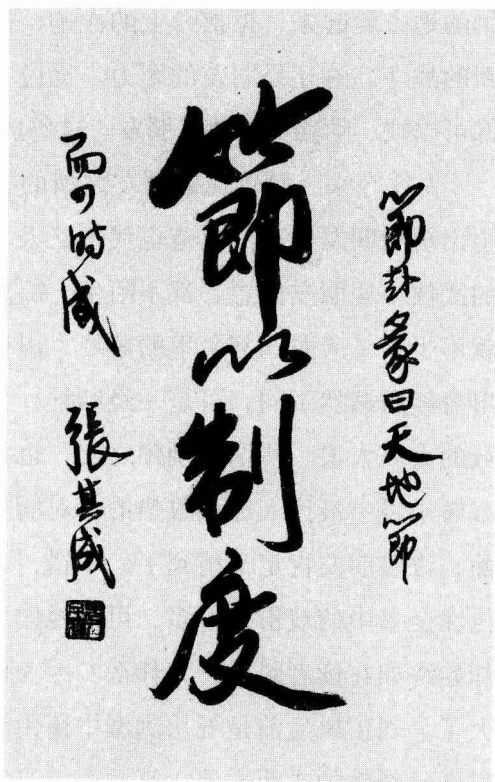 節卦彖曰天地節
節以制度
而四時成
張其成